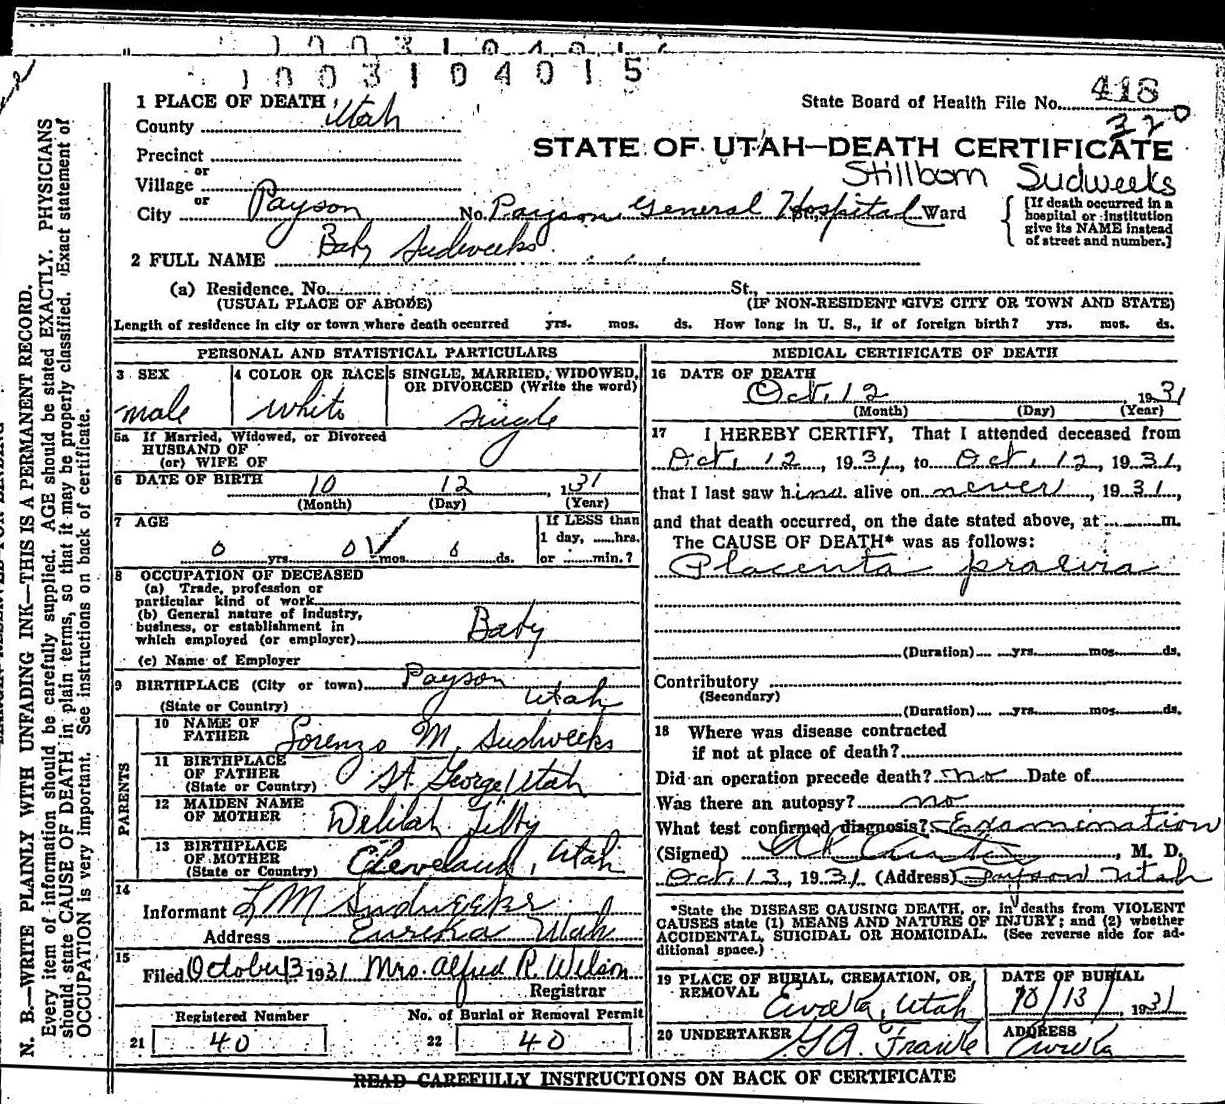 1003104015
1003104015
1 PLACE OF DEATH
State Board of Health File No. 418
County Utah
320
Precinct
STATE OF UTAH—DEATH CERTIFICATE
or
Village
Stillborn Sudweeks
or
City Payson No. Payson General Hospital Ward
[If death occurred in a
hospital or institution
give its NAME instead
of street and number.]
2 FULL NAME Baby Sudweeks
(a) Residence. No. St.,
(USUAL PLACE OF ABODE) (IF NON-RESIDENT GIVE CITY OR TOWN AND STATE)
Length of residence in city or town where death occurred yrs. mos. ds. How long in U. S., if of foreign birth? yrs. mos. ds.
PERSONAL AND STATISTICAL PARTICULARS
3 SEX
male
4 COLOR OR RACE
white
5 SINGLE, MARRIED, WIDOWED,
OR DIVORCED (Write the word)
single
5a If Married, Widowed, or Divorced
HUSBAND OF
(or) WIFE OF
6 DATE OF BIRTH 10 12, 1931
(Month) (Day) (Year)
7 AGE
0 yrs. 0 mos. 0 ds.
If LESS than
1 day, ......hrs.
or ......min.?
8 OCCUPATION OF DECEASED
(a) Trade, profession or
particular kind of work
(b) General nature of industry,
business, or establishment in
which employed (or employer) Baby
(c) Name of Employer
9 BIRTHPLACE (City or town) Payson
(State or Country) Utah
PARENTS
10 NAME OF
FATHER Lorenzo M. Sudweeks
11 BIRTHPLACE
OF FATHER
(State or Country) St. George, Utah
12 MAIDEN NAME
OF MOTHER Delilah Tilby
13 BIRTHPLACE
OF MOTHER
(State or Country) Cleveland, Utah
14
Informant L M Sudweeks
Address Eureka Utah
15
Filed October 13 1931 Mrs. Alfred R. Wilson
Registrar
Registered Number No. of Burial or Removal Permit
21 40 22 40
MEDICAL CERTIFICATE OF DEATH
16 DATE OF DEATH
Oct. 12, 1931
(Month) (Day) (Year)
17 I HEREBY CERTIFY, That I attended deceased from
Oct. 12, 1931, to Oct. 12, 1931,
that I last saw him alive on never, 1931,
and that death occurred, on the date stated above, at ......m.
The CAUSE OF DEATH* was as follows:
Placenta praevia
(Duration) yrs. mos. ds.
Contributory
(Secondary)
(Duration) yrs. mos. ds.
18 Where was disease contracted
if not at place of death?
Did an operation precede death? no Date of
Was there an autopsy? no
What test confirmed diagnosis? Examination
(Signed) , M. D.
Oct 13, 1931 (Address) Payson Utah
*State the DISEASE CAUSING DEATH, or, in deaths from VIOLENT
CAUSES state (1) MEANS AND NATURE OF INJURY; and (2) whether
ACCIDENTAL, SUICIDAL OR HOMICIDAL. (See reverse side for ad-
ditional space.)
19 PLACE OF BURIAL, CREMATION, OR
REMOVAL Eureka, Utah
DATE OF BURIAL
10/13/ 1931
20 UNDERTAKER G A. Franke
ADDRESS
Eureka
READ CAREFULLY INSTRUCTIONS ON BACK OF CERTIFICATE
N. B.—WRITE PLAINLY WITH UNFADING INK—THIS IS A PERMANENT RECORD.
Every item of information should be carefully supplied. AGE should be stated EXACTLY. PHYSICIANS
should state CAUSE OF DEATH in plain terms, so that it may be properly classified. Exact statement of
OCCUPATION is very important. See instructions on back of certificate.